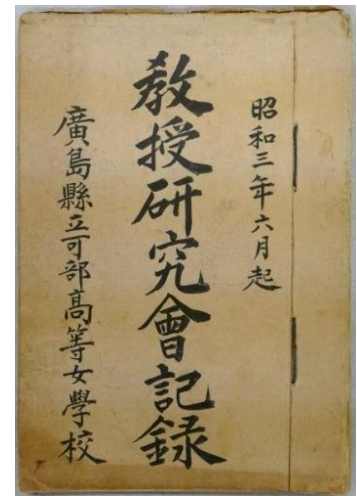 昭和三年六月起
教授研究會記録
廣島縣立可部髙等女學校